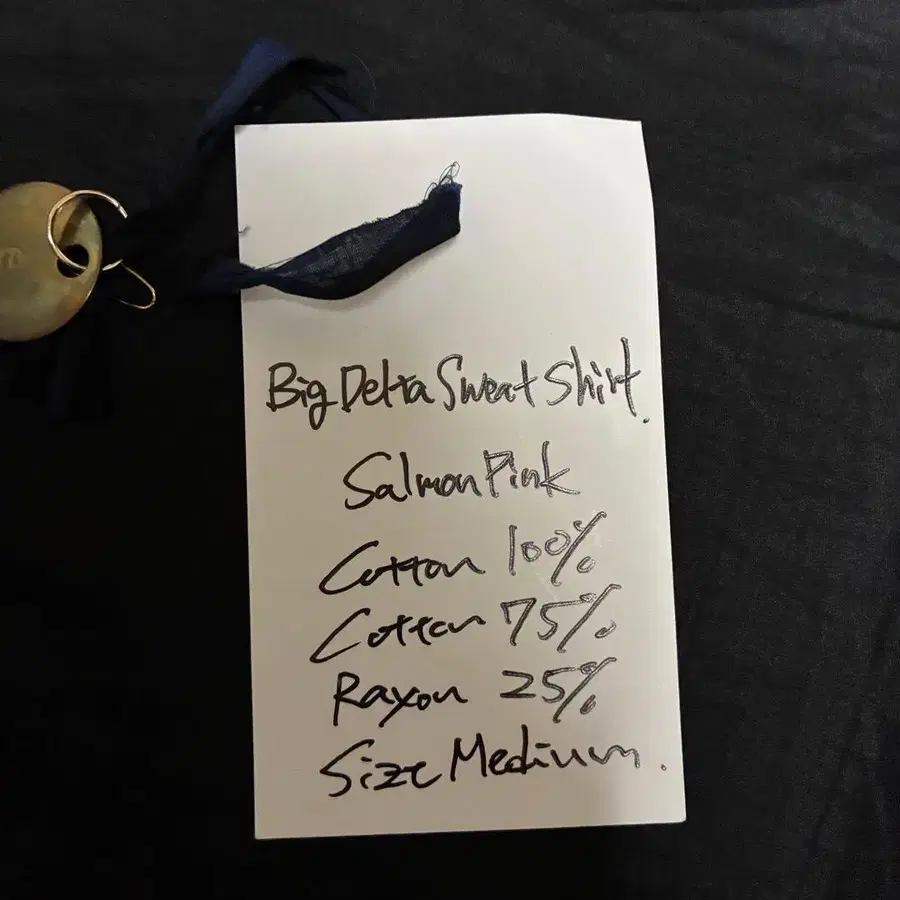 Big Delta Sweat Shirt.
Salmon Pink
Cotton 100%
Cotton 75%
Rayon 25%
Size Medium.